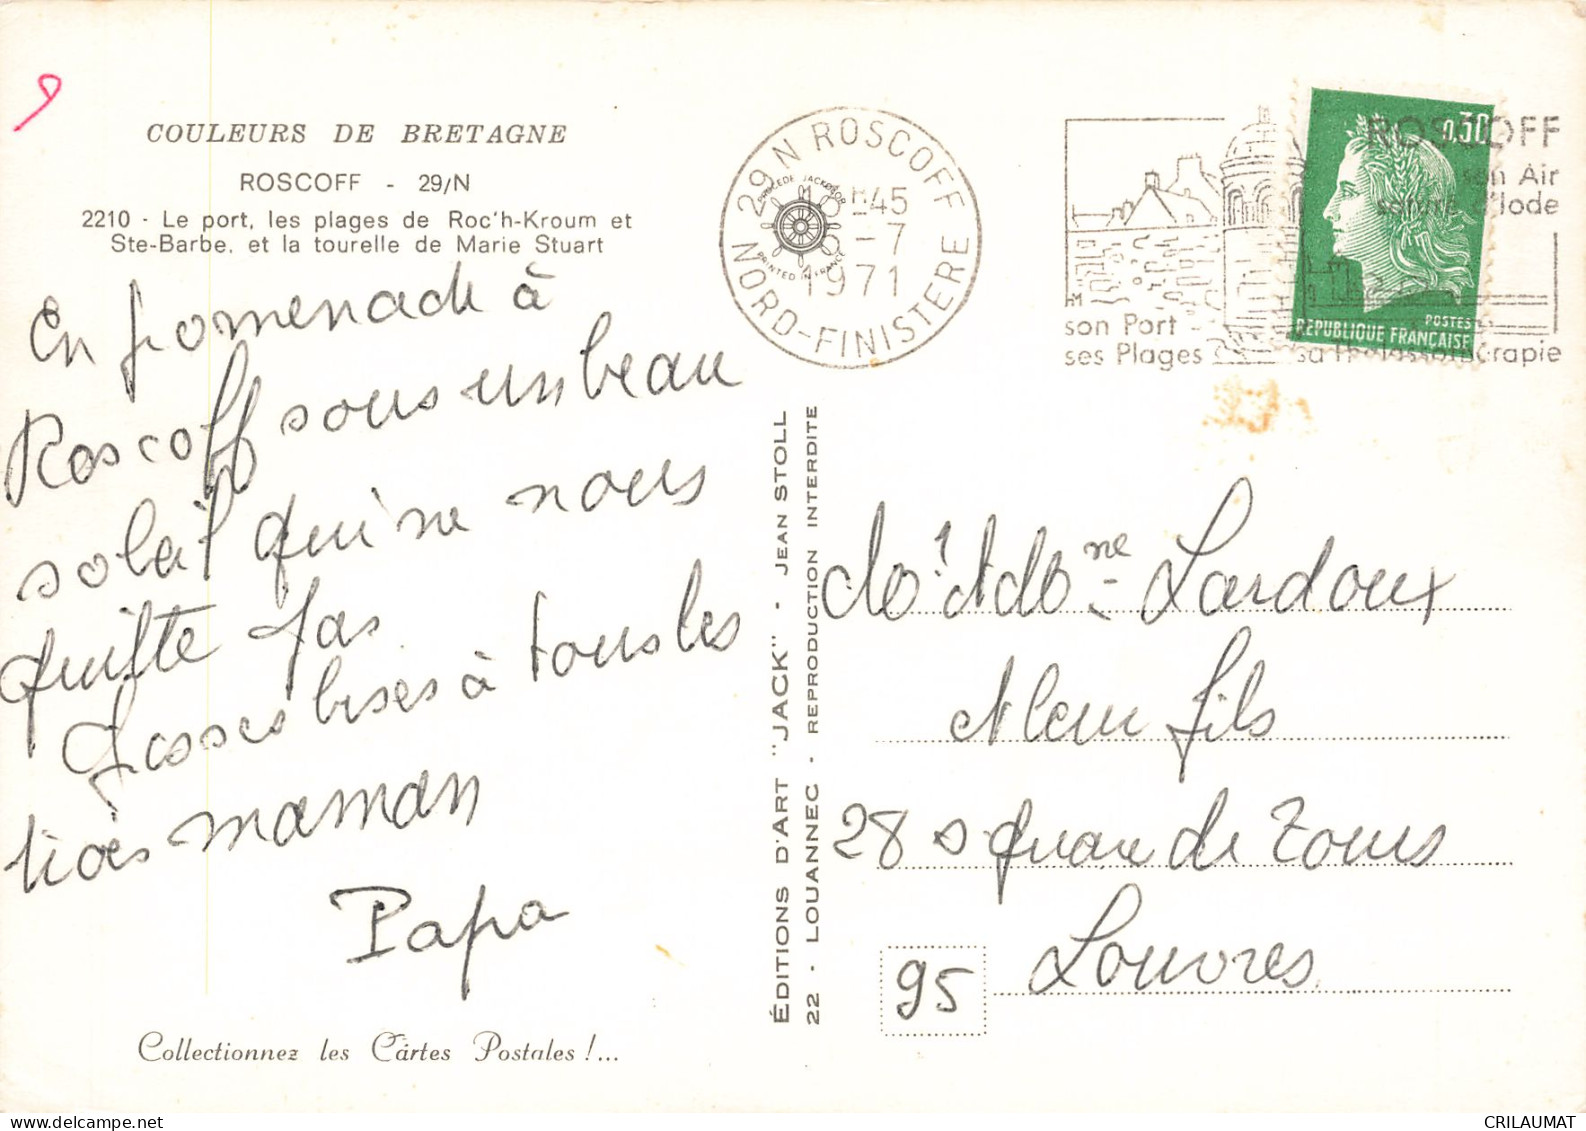 COULEURS DE BRETAGNE
ROSCOFF - 29/N
2210 - Le port, les plages de Roc'h-Kroum et
Ste-Barbe. et la tourelle de Marie Stuart
En promenade à
Roscoff sous un beau
soleil qui ne nous
quitte pas
Grosses bises à tous les
trois maman
Papa
Collectionnez les Cartes Postales !...
ÉDITIONS D'ART "JACK" - JEAN STOLL
22 - LOUANNEC - REPRODUCTION INTERDITE
29N ROSCOFF
-45
-7
1971
NORD-FINISTERE
PRINTED IN FRANCE
ROSCOFF
son Air
d'Iode
son Port
ses Plages
sa Thalassothérapie
0,30
POSTES
REPUBLIQUE FRANÇAISE
Lardoux
fils
28 square de Tours
95 Louvres
CRILAUMAT